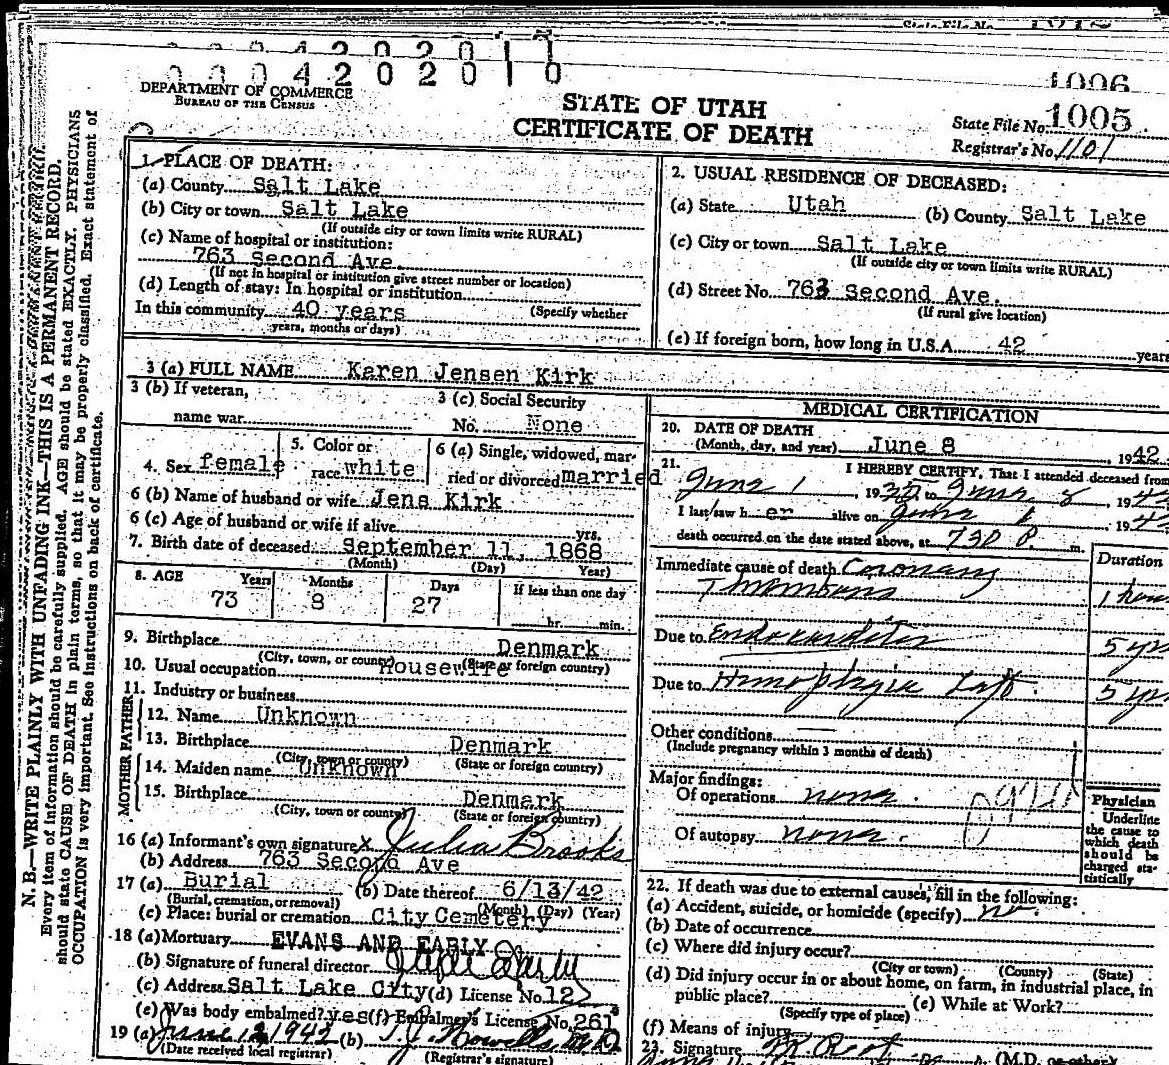 State File No. 1012
00042020
000420201 0
1006
DEPARTMENT OF COMMERCE
BUREAU OF THE CENSUS
STATE OF UTAH
CERTIFICATE OF DEATH
State File No. 1005
Registrar's No. 1101
N. B.—WRITE PLAINLY WITH UNFADING INK—THIS IS A PERMANENT RECORD.
Every item of information should be carefully supplied. AGE should be stated EXACTLY. PHYSICIANS
should state CAUSE OF DEATH in plain terms, so that it may be properly classified. Exact statement of
OCCUPATION is very important. See instructions on back of certificate.
1. PLACE OF DEATH:
(a) County Salt Lake
(b) City or town Salt Lake
(If outside city or town limits write RURAL)
(c) Name of hospital or institution:
763 Second Ave.
(If not in hospital or institution give street number or location)
(d) Length of stay: In hospital or institution
In this community 40 years (Specify whether
years, months or days)
2. USUAL RESIDENCE OF DECEASED:
(a) State Utah (b) County Salt Lake
(c) City or town Salt Lake
(If outside city or town limits write RURAL)
(d) Street No. 763 Second Ave.
(If rural give location)
(e) If foreign born, how long in U.S.A. 42 years
3 (a) FULL NAME Karen Jensen Kirk
3 (b) If veteran,
name war
3 (c) Social Security
No. None
4. Sex female
5. Color or
race white
6 (a) Single, widowed, mar-
ried or divorced married
6 (b) Name of husband or wife Jens Kirk
6 (c) Age of husband or wife if alive yrs.
7. Birth date of deceased: September 11, 1868
(Month) (Day) Year)
8. AGE Years Months Days If less than one day
73 8 27
hr. min.
9. Birthplace Denmark
(City, town, or county) (State or foreign country)
10. Usual occupation Housewife
11. Industry or business
MOTHER FATHER
12. Name Unknown
13. Birthplace Denmark
(City, town or county) (State or foreign country)
14. Maiden name Unknown
15. Birthplace Denmark
(City, town, or county) (State or foreign country)
16 (a) Informant's own signature x Julia Brooks
(b) Address 763 Second Ave
17 (a) Burial (b) Date thereof 6/13/42
(Burial, cremation, or removal) (Month) (Day) (Year)
(c) Place: burial or cremation City Cemetery
18 (a) Mortuary EVANS AND EARLY
(b) Signature of funeral director
(c) Address Salt Lake City (d) License No. 12
(e) Was body embalmed? yes (f) Embalmer's License No. 261
19 (a) June 12, 1942 (b) T. J. Howells M.D.
(Date received local registrar) (Registrar's signature)
MEDICAL CERTIFICATION
20. DATE OF DEATH
(Month, day, and year) June 8 1942
21. I HEREBY CERTIFY, That I attended deceased from
June 1, 19 to June 8, 194
I last saw h er alive on June 194
death occurred on the date stated above, at 730 P. m.
Duration
Immediate cause of death Coronary
Thrombosis 1 hour
Due to Endocarditis 5 yrs
Due to Hemiplegia Left 5 yrs
Other conditions
(Include pregnancy within 3 months of death)
Major findings:
Of operations none.
Of autopsy none.
Physician
Underline
the cause to
which death
should be
charged sta-
tistically
22. If death was due to external causes, fill in the following:
(a) Accident, suicide, or homicide (specify) no
(b) Date of occurrence
(c) Where did injury occur?
(City or town) (County) (State)
(d) Did injury occur in or about home, on farm, in industrial place, in
public place? (e) While at Work?
(Specify type of place)
(f) Means of injury
23. Signature (M.D. or other)